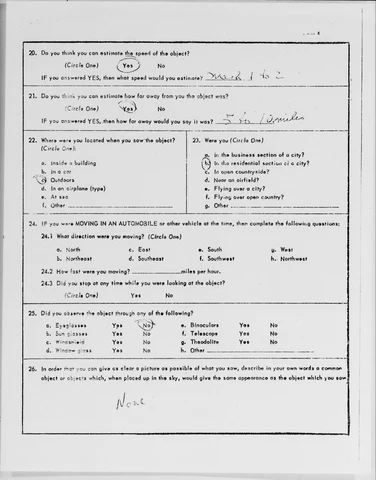 20. Do you think you can estimate the speed of the object?
(Circle One) Yes No
IF you answered YES, then what speed would you estimate? Mach 1 to 2
21. Do you think you can estimate how far away from you the object was?
(Circle One) Yes No
IF you answered YES, then how far away would you say it was? 5 to miles
22. Where were you located when you saw the object?
(Circle One):
a. Inside a building
b. In a car
c. Outdoors
d. In an airplane (type)
e. At sea
f. Other
23. Were you (Circle One)
a. In the business section of a city?
b. In the residential section of a city?
c. In open countryside?
d. Near an airfield?
e. Flying over a city?
f. Flying over open country?
g. Other
24. IF you were MOVING IN AN AUTOMOBILE or other vehicle at the time, then complete the following questions:
24.1 What direction were you moving? (Circle One)
a. North c. East e. South g. West
b. Northeast d. Southeast f. Southwest h. Northwest
24.2 How fast were you moving? miles per hour.
24.3 Did you stop at any time while you were looking at the object?
(Circle One) Yes No
25. Did you observe the object through any of the following?
a. Eyeglasses Yes No e. Binoculars Yes No
b. Sun glasses Yes No f. Telescope Yes No
c. Windshield Yes No g. Theodolite Yes No
d. Window glass Yes No h. Other
26. In order that you can give as clear a picture as possible of what you saw, describe in your own words a common
object or objects which, when placed up in the sky, would give the same appearance as the object which you saw
None